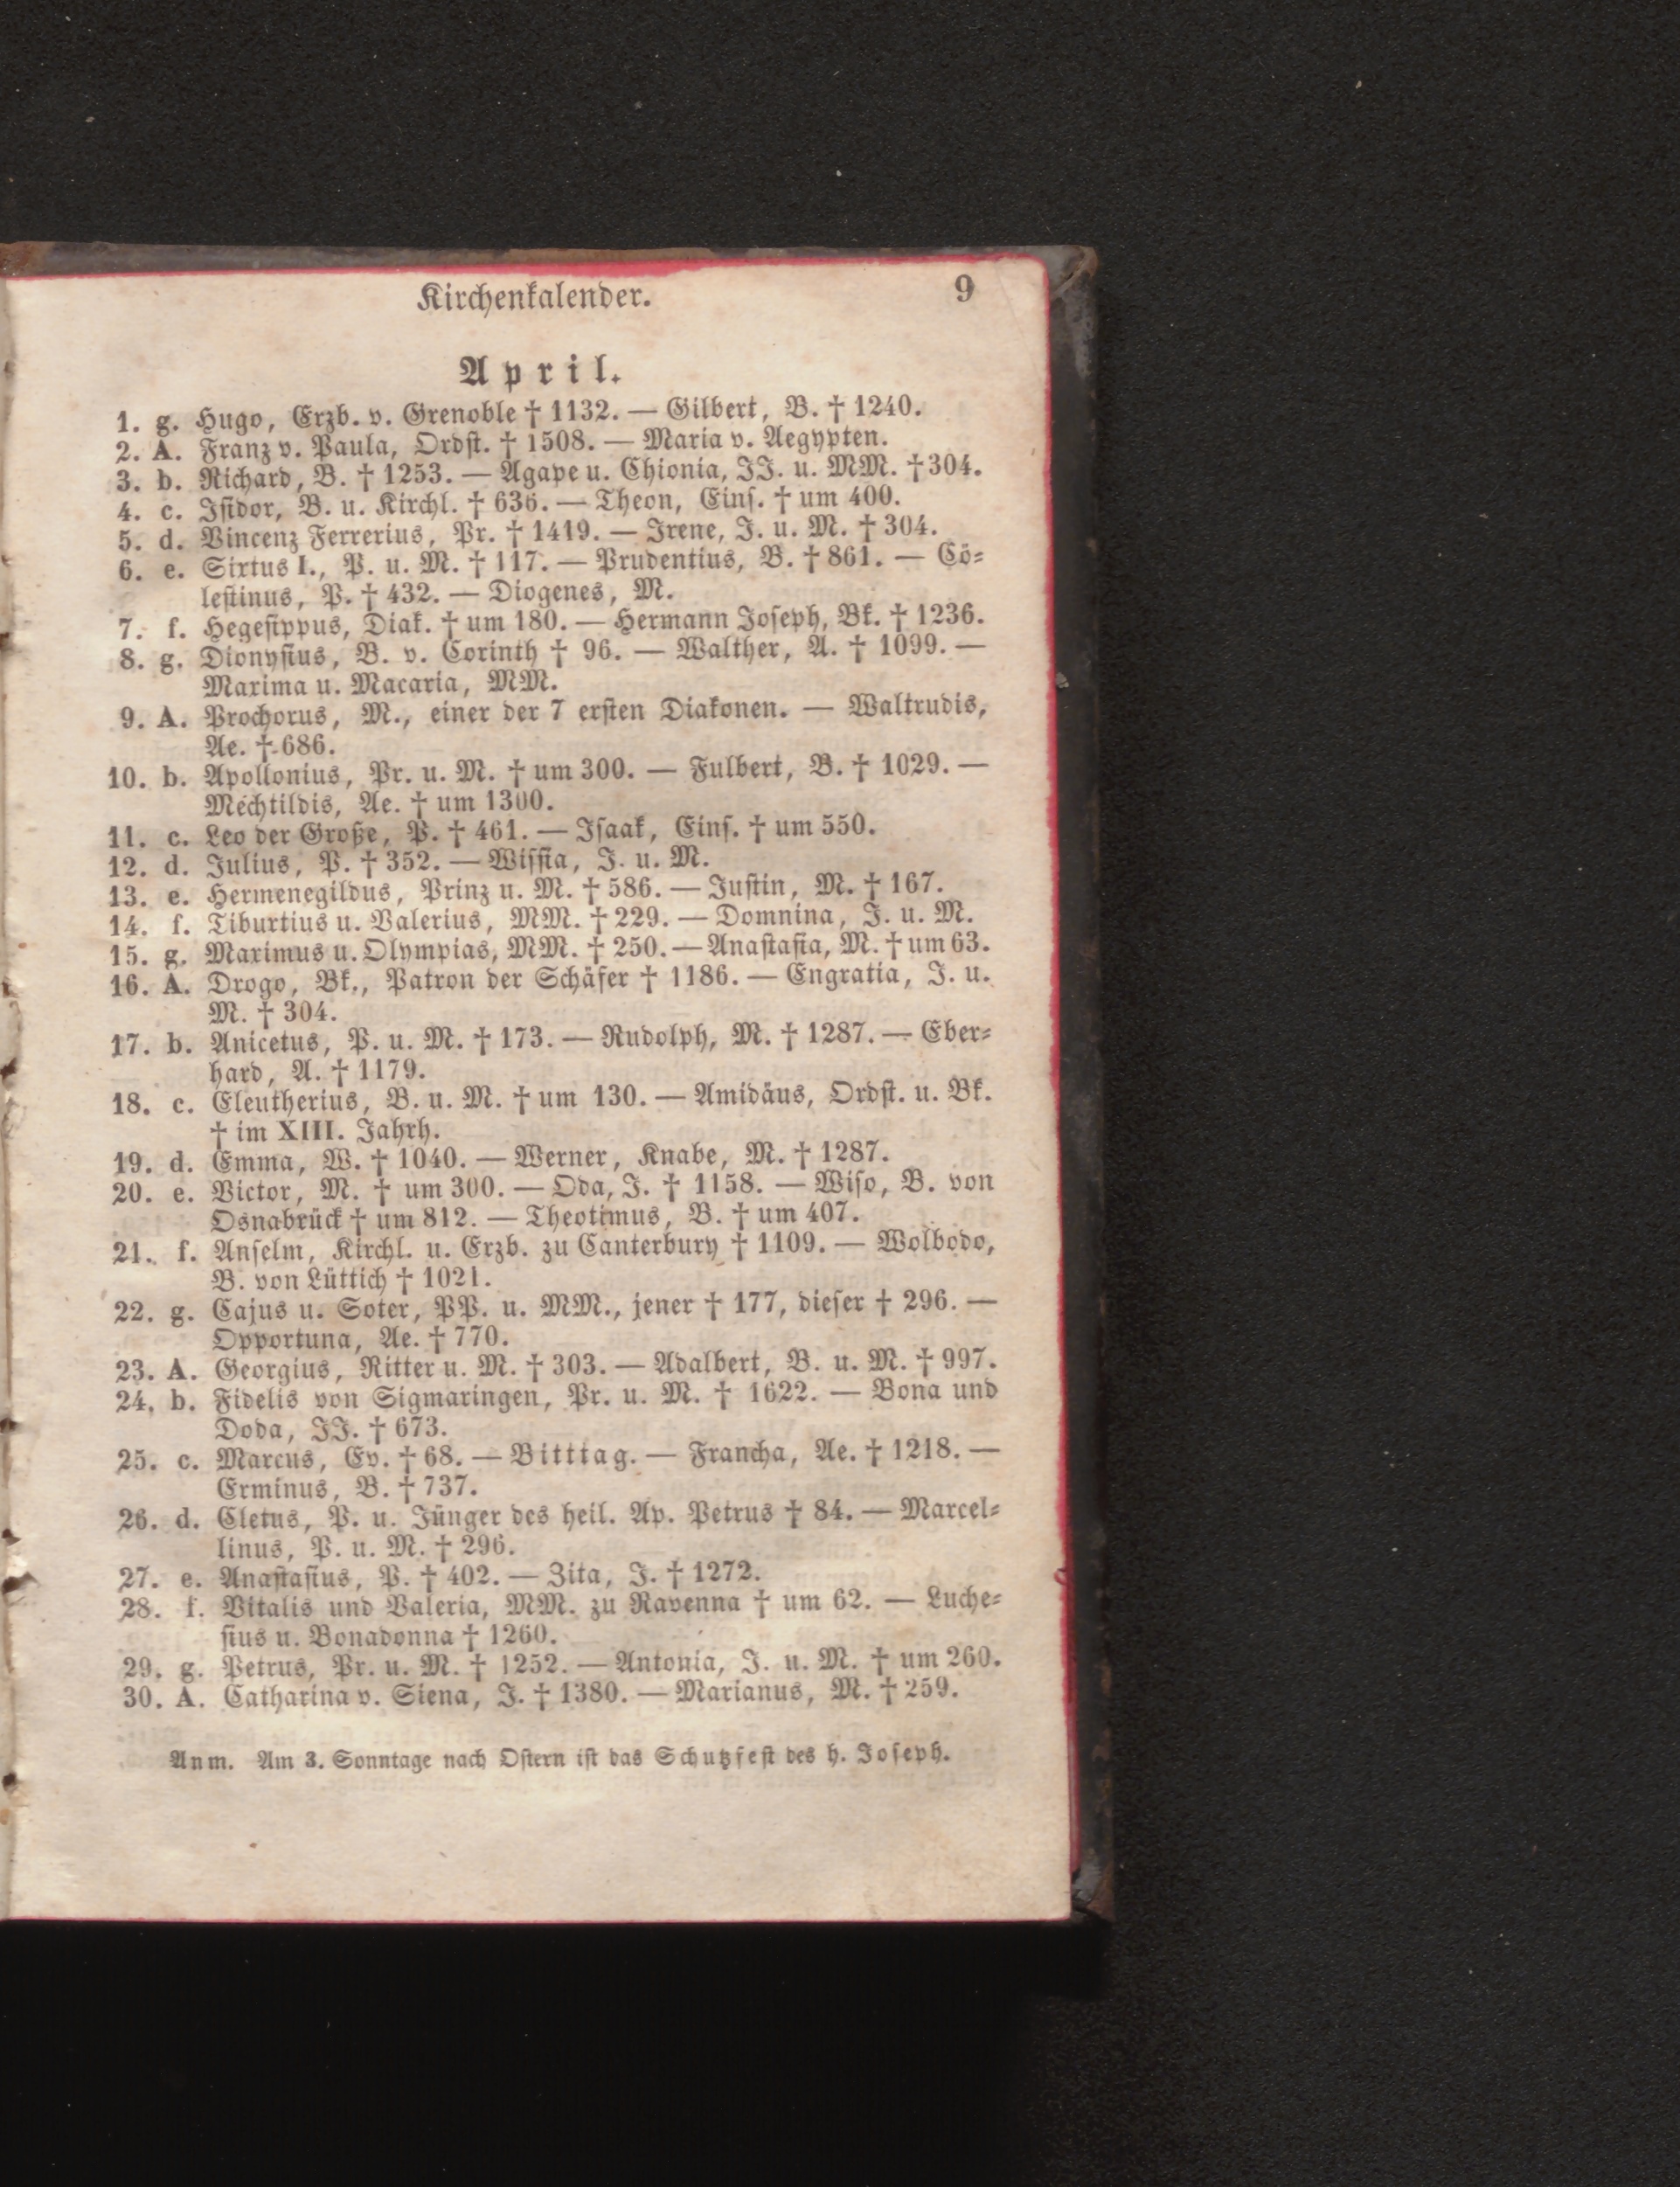 Kirchenkalender. 9
April.
1. g. Hugo, Erzb. v. Grenoble † 1132. — Gilbert, B. † 1240.
2. A. Franz v. Paula, Ordst. † 1508. — Maria v. Aegypten.
3. b. Richard, B. † 1253. — Agape u. Chionia, JJ. u. MM. † 304.
4. c. Isidor, B. u. Kirchl. † 636. — Theon, Eins. † um 400.
5. d. Vincenz Ferrerius, Pr. † 1419. — Irene, J. u. M. † 304.
6. e. Sixtus I., P. u. M. † 117. — Prudentius, B. † 861. — Cö-
lestinus, P. † 432. — Diogenes, M.
7. f. Hegesippus, Diak. † um 180. — Hermann Joseph, Bk. † 1236.
8. g. Dionysius, B. v. Corinth † 96. — Walther, A. † 1099. —
Maxima u. Macaria, MM.
9. A. Prochorus, M., einer der 7 ersten Diakonen. — Waltrudis,
Ae. † 686.
10. b. Apollonius, Pr. u. M. † um 300. — Fulbert, B. † 1029. —
Mechtildis, Ae. † um 1300.
11. c. Leo der Große, P. † 461. — Isaak, Eins. † um 550.
12. d. Julius, P. † 352. — Wissia, J. u. M.
13. e. Hermenegildus, Prinz u. M. † 586. — Justin, M. † 167.
14. f. Tiburtius u. Valerius, MM. † 229. — Domnina, J. u. M.
15. g. Maximus u. Olympias, MM. † 250. — Anastasia, M. † um 63.
16. A. Drogo, Bk., Patron der Schäfer † 1186. — Engratia, J. u.
M. † 304.
17. b. Anicetus, P. u. M. † 173. — Rudolph, M. † 1287. — Eber-
hard, A. † 1179.
18. c. Eleutherius, B. u. M. † um 130. — Amidäus, Ordst. u. Bk.
† im XIII. Jahrh.
19. d. Emma, W. † 1040. — Werner, Knabe, M. † 1287.
20. e. Victor, M. † um 300. — Oda, J. † 1158. — Wiso, B. von
Osnabrück † um 812. — Theotimus, B. † um 407.
21. f. Anselm, Kirchl. u. Erzb. zu Canterbury † 1109. — Wolbodo,
B. von Lüttich † 1021.
22. g. Cajus u. Soter, PP. u. MM., jener † 177, dieser † 296. —
Opportuna, Ae. † 770.
23. A. Georgius, Ritter u. M. † 303. — Adalbert, B. u. M. † 997.
24. b. Fidelis von Sigmaringen, Pr. u. M. † 1622. — Bona und
Doda, JJ. † 673.
25. c. Marcus, Ev. † 68. — Bitttag. — Francha, Ae. † 1218. —
Erminus, B. † 737.
26. d. Cletus, P. u. Jünger des heil. Ap. Petrus † 84. — Marcel-
linus, P. u. M. † 296.
27. e. Anastasius, P. † 402. — Zita, J. † 1272.
28. f. Vitalis und Valeria, MM. zu Ravenna † um 62. — Luche-
sius u. Bonadonna † 1260.
29. g. Petrus, Pr. u. M. † 1252. — Antonia, J. u. M. † um 260.
30. A. Catharina v. Siena, J. † 1380. — Marianus, M. † 259.
Anm. Am 3. Sonntage nach Ostern ist das Schutzfest des h. Joseph.